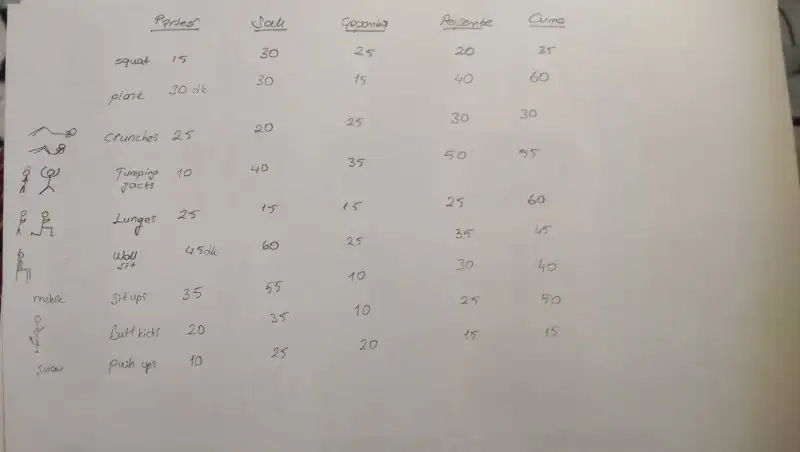 Salı Perşembe Cuma
squat 15 30 25 20 35
plank 30 dk 30 15 40 60
crunches 25 20 25 30 30
Jumping jacks 10 40 35 50 55
Lunges 25 15 15 25 60
Wall sit 45dk 60 25 35 45
mekik situps 35 55 10 30 40
Butt kicks 20 35 10 25 50
Push ups 10 25 20 15 15